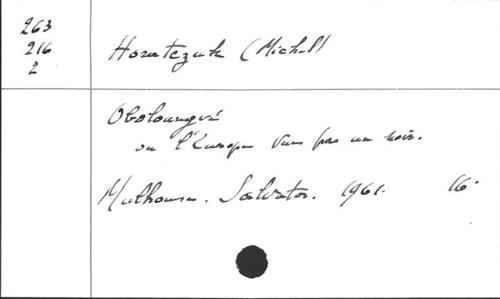 263
216
2
Horatczuk (Michel)
Oboloungvi
ou l'Europe vue par un noir.
Mulhouse. Salvator. 1961. 16°